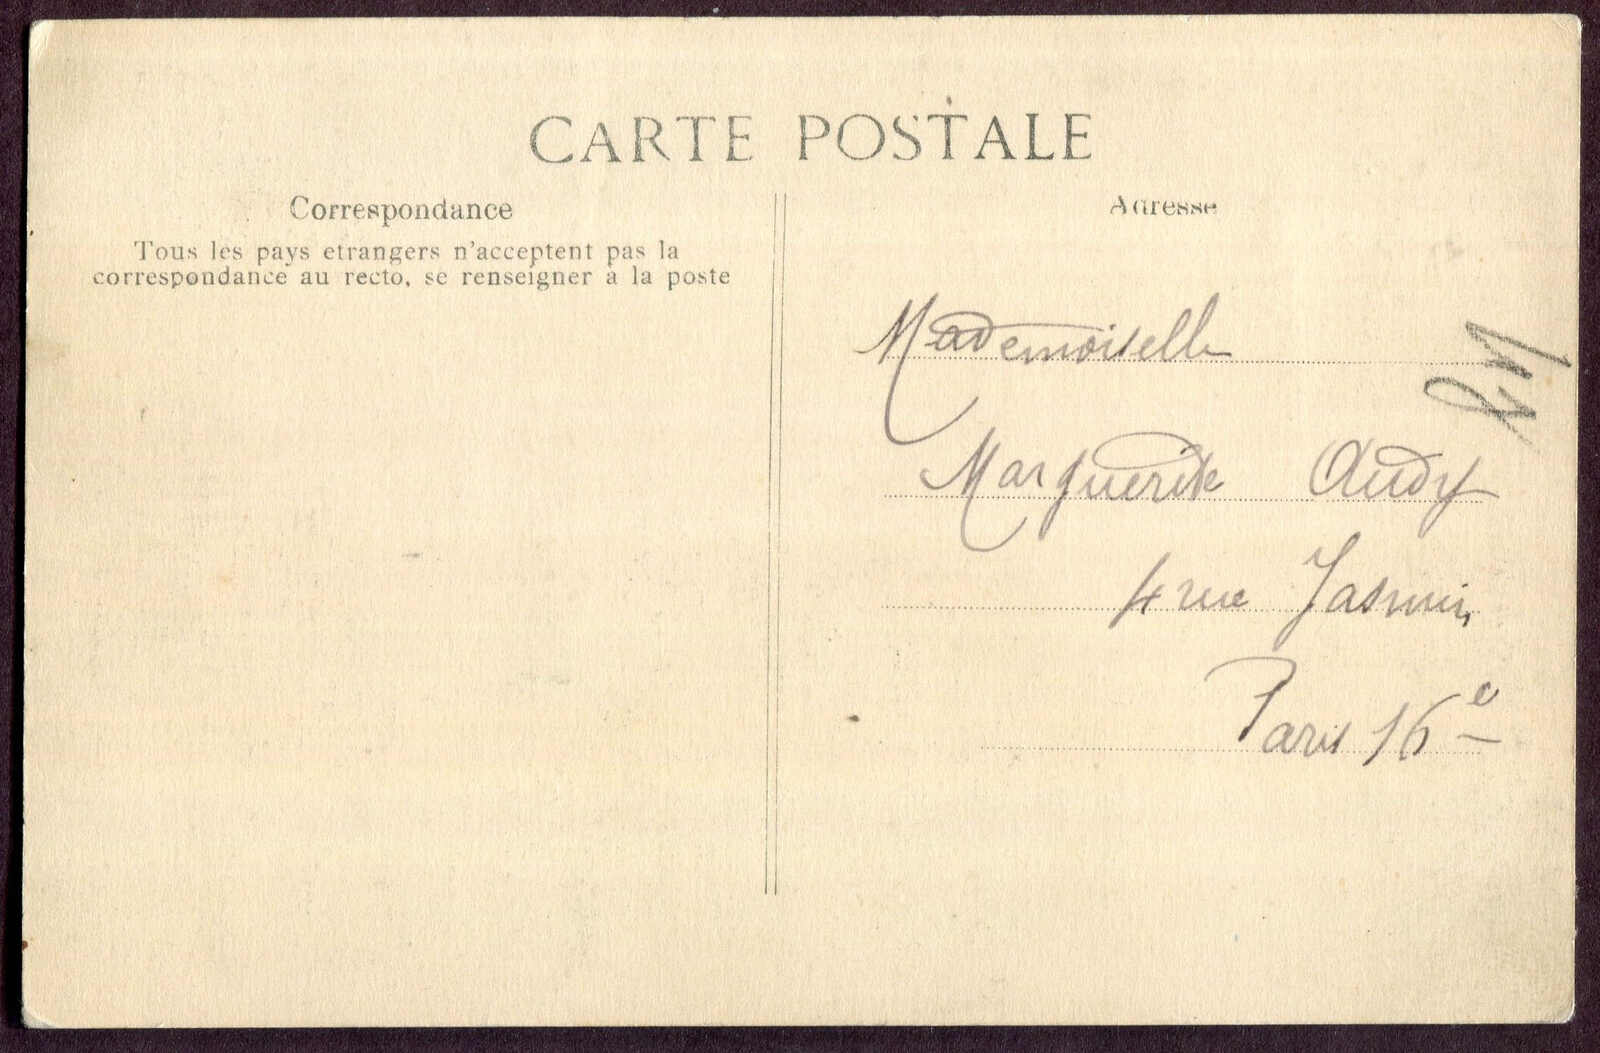 CARTE POSTALE
Correspondance
Tous les pays etrangers n'acceptent pas la
correspondance au recto, se renseigner a la poste
Adresse
Mademoiselle
Marguerite Audy
4 rue Jasmin
Paris 16e